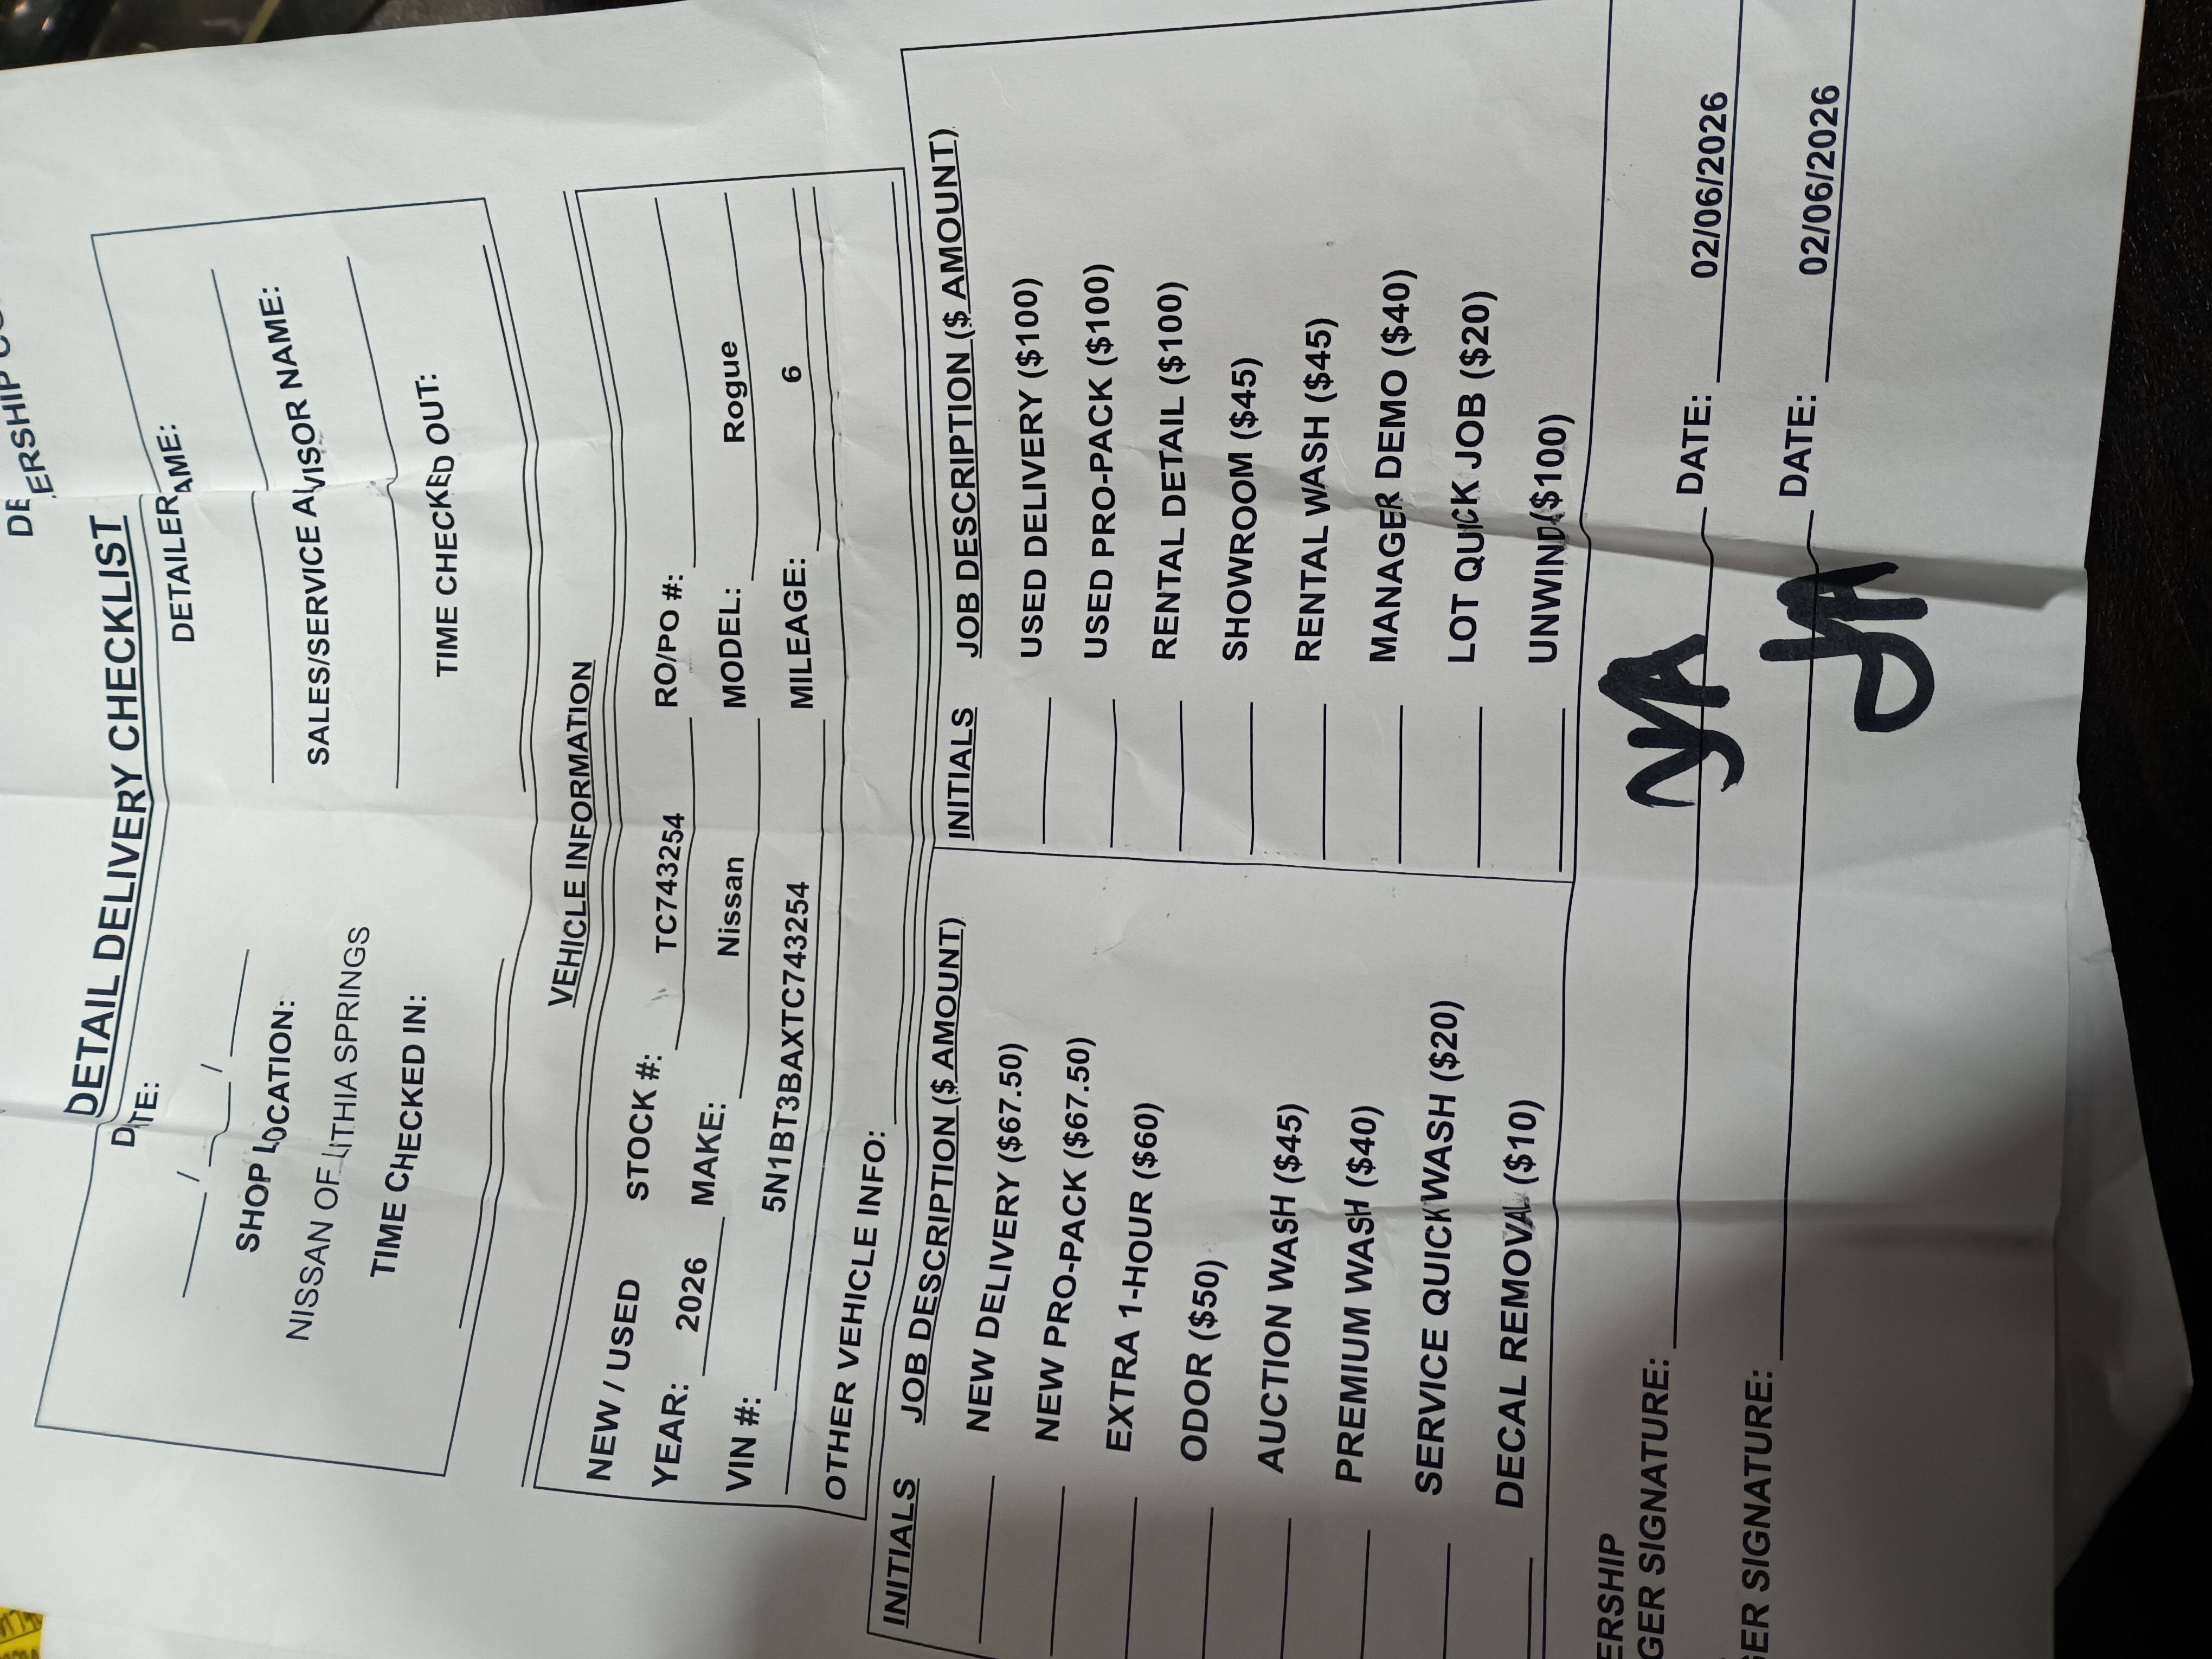 DETAIL DELIVERY CHECKLIST
DATE: DETAILER NAME:
/ /
SHOP LOCATION: SALES/SERVICE ADVISOR NAME:
NISSAN OF LITHIA SPRINGS
TIME CHECKED IN: TIME CHECKED OUT:
VEHICLE INFORMATION
NEW / USED STOCK #: TC743254 RO/PO #:
YEAR: 2026 MAKE: Nissan MODEL: Rogue
VIN #: 5N1BT3BAXTC743254 MILEAGE: 6
OTHER VEHICLE INFO:
INITIALS JOB DESCRIPTION ($ AMOUNT) INITIALS JOB DESCRIPTION ($ AMOUNT)
NEW DELIVERY ($67.50) USED DELIVERY ($100)
NEW PRO-PACK ($67.50) USED PRO-PACK ($100)
EXTRA 1-HOUR ($60) RENTAL DETAIL ($100)
ODOR ($50) SHOWROOM ($45)
AUCTION WASH ($45) RENTAL WASH ($45)
PREMIUM WASH ($40) MANAGER DEMO ($40)
SERVICE QUICKWASH ($20) LOT QUICK JOB ($20)
DECAL REMOVAL ($10) UNWIND($100)
ERSHIP
GER SIGNATURE: DATE: 02/06/2026
GER SIGNATURE: DATE: 02/06/2026